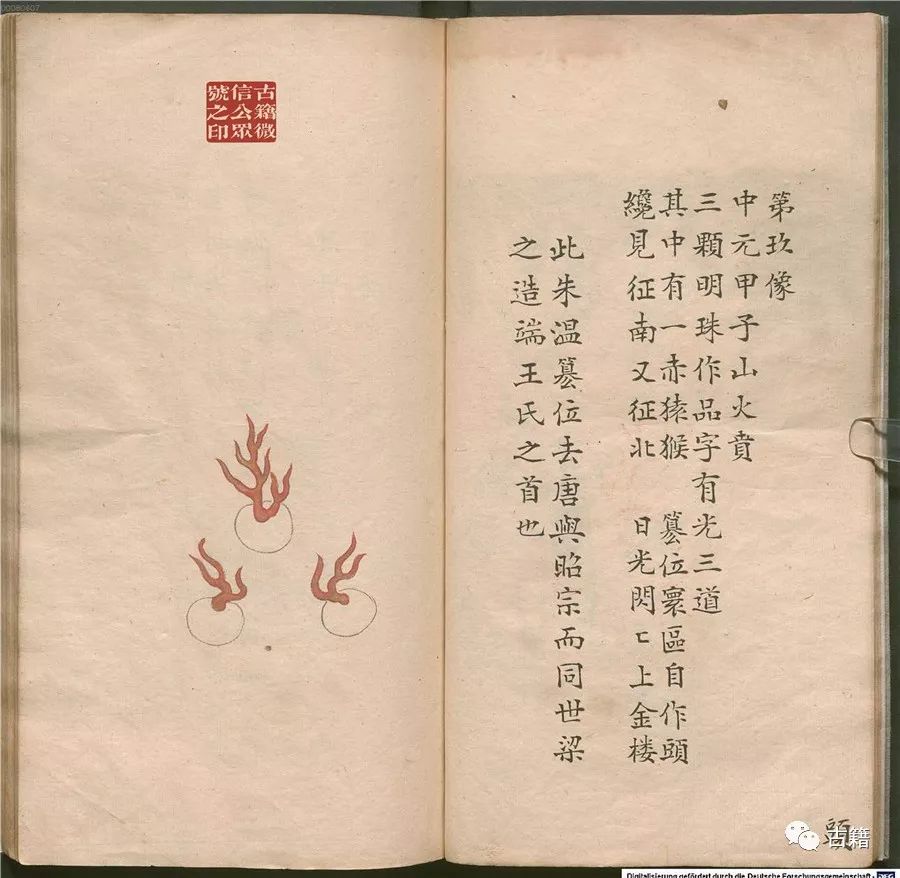 第玖像
中元甲子山火賁
三顆明珠作品字有光三道
其中有一赤猿猴 篡位寰區自作頭
纔見征南又征北 日光閃〻上金楼
此朱温篡位去唐與昭宗而同世梁
之造端王氏之首也
古籍微
信公眾
號之印
古籍